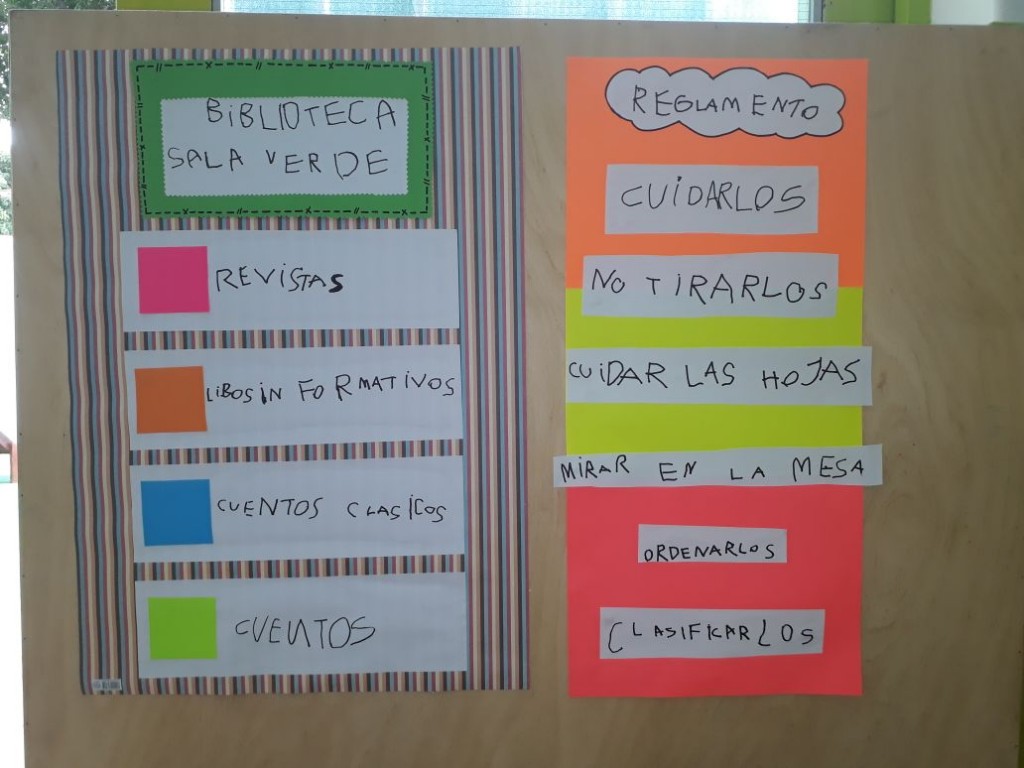 BIBLIOTECA
SALA VERDE
REVISTAS
LIBOSIN FORMATIVOS
CUENTOS CLASICOS
CUENTOS
REGLAMENTO
CUIDARLOS
NO TIRARLOS
CUIDAR LAS HOJAS
MIRAR EN LA MESA
ORDENARLOS
CLASIFICARLOS